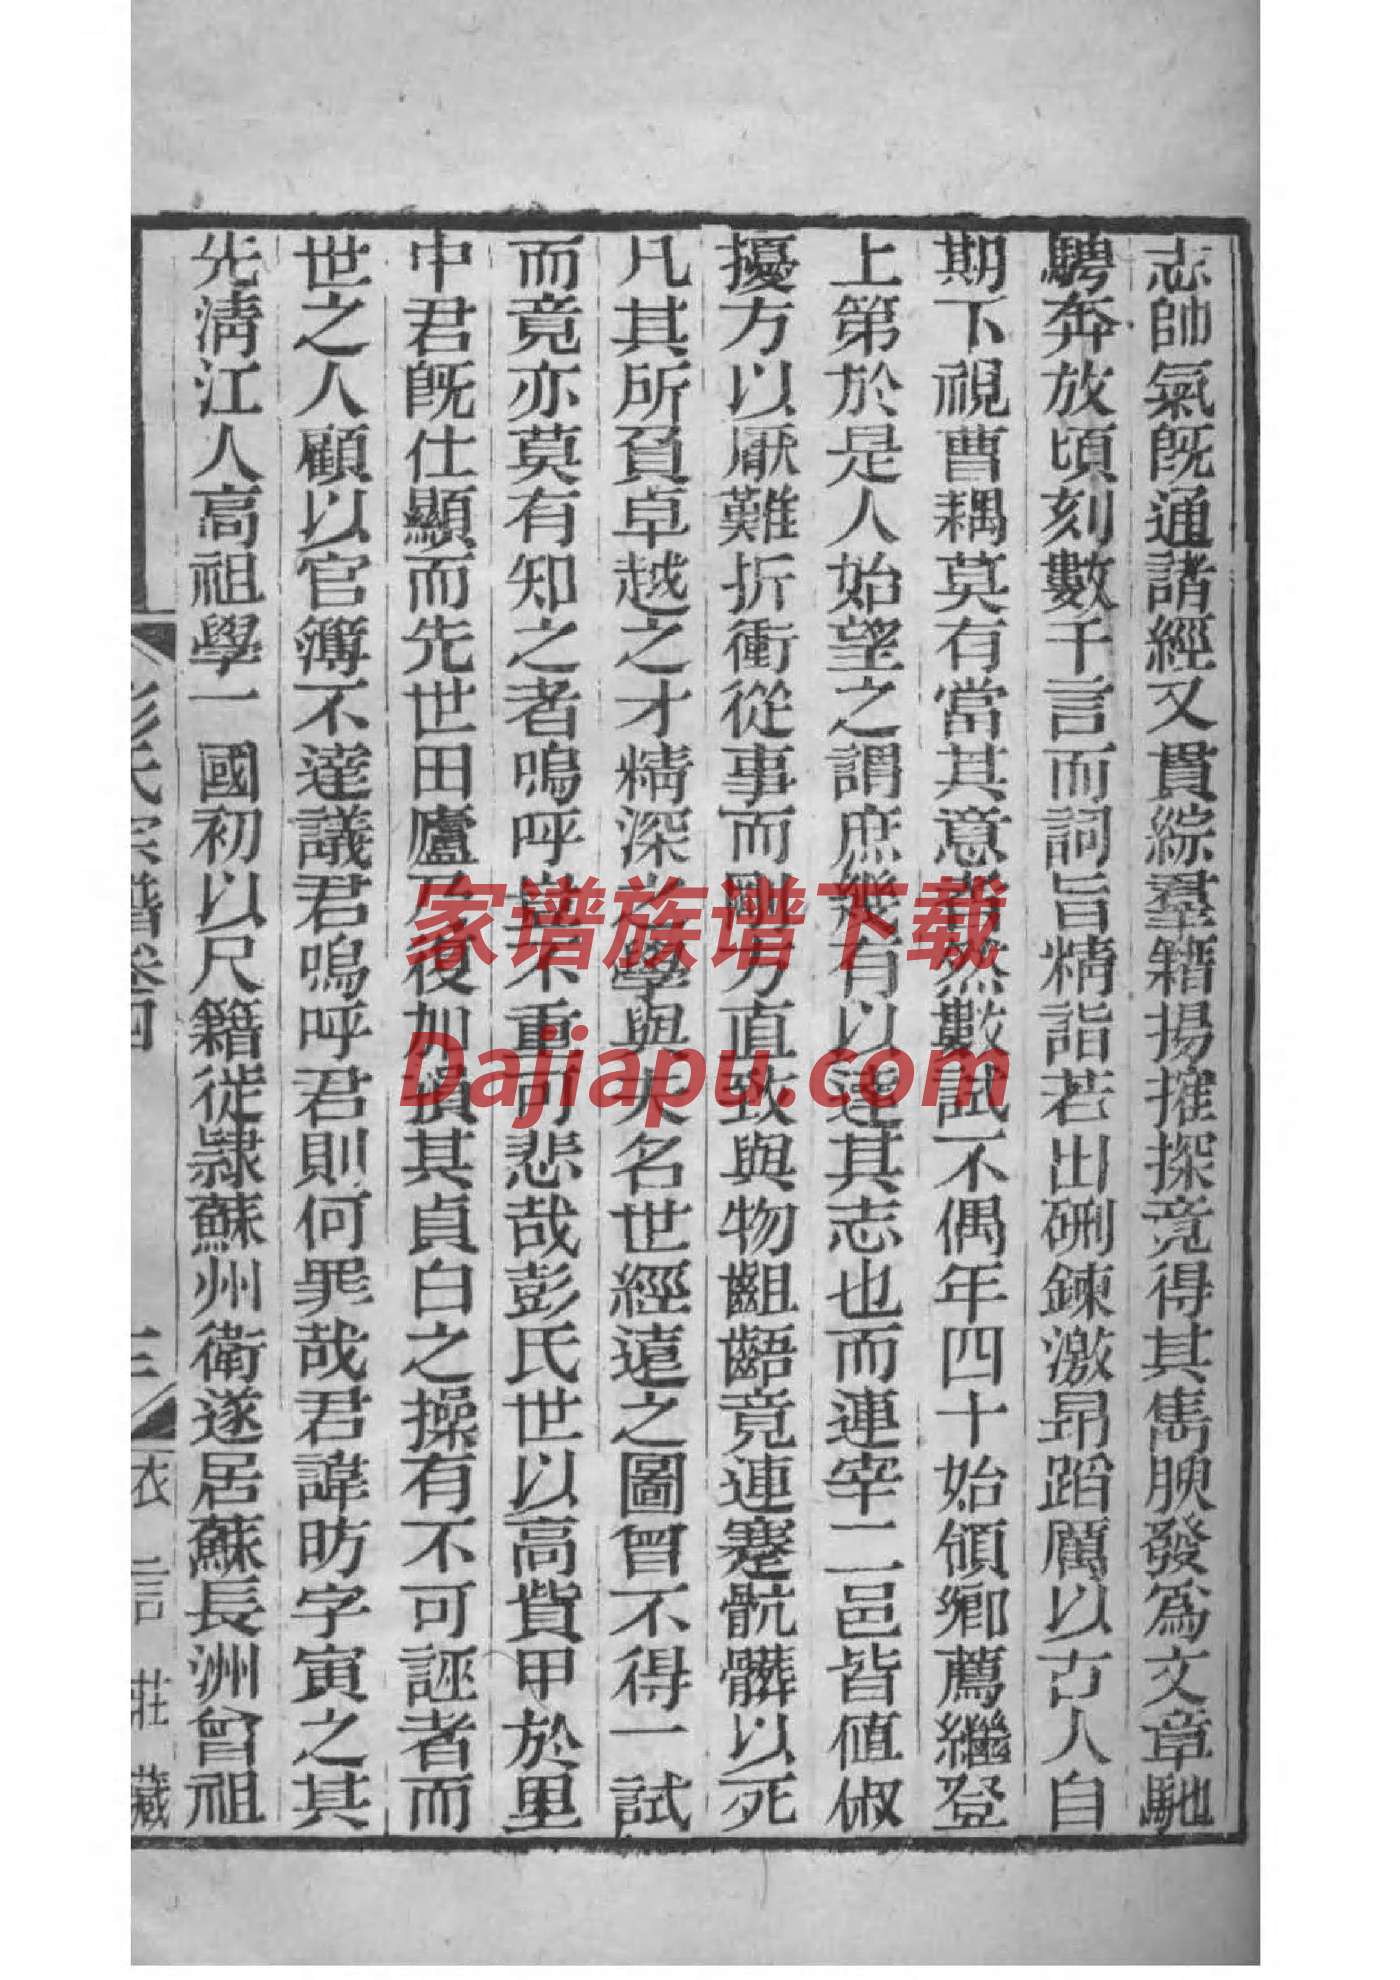 志帥氣既通諸經又貫綜羣籍揚搉探竟得其雋腴發爲文章馳
騁奔放頃刻數千言而詞旨精詣若出硎鍊激昂蹈厲以古人自
期下視曹耦莫有當其意者然數試不偶年四十始領鄉薦繼登
上第於是人始望之謂庶幾有以達其志也而連宰二邑皆値俶
擾方以厭難折衝從事而剛方直致與物齟齬竟連蹇骯髒以死
凡其所負卓越之才精深之學與夫名世經遠之圖曾不得一試
而竟亦莫有知之者嗚呼豈不重可悲哉彭氏世以高貲甲於里
中君旣仕顯而先世田廬乃復加損其貞白之操有不可誣者而
世之人顧以官簿不達議君嗚呼君則何罪哉君諱昉字寅之其
先淸江人高祖學一國初以尺籍從隷蘇州衛遂居蘇長洲曾祖
彭氏宗譜卷四
三
衣言莊藏
家谱族谱下载
Dajiapu.com